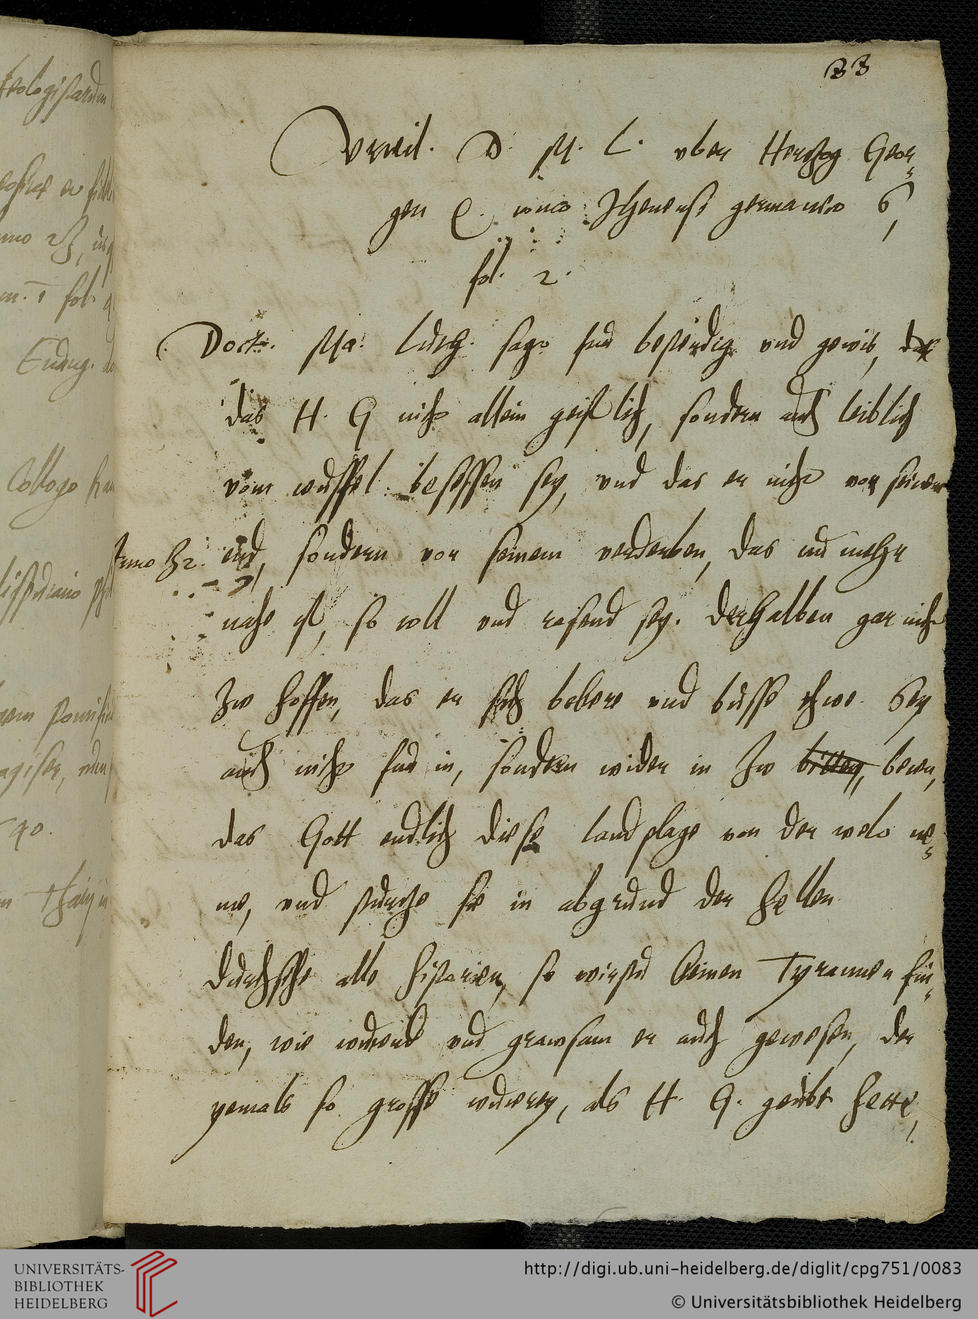 33
Vrteil D. M. L. vber Hertzog Geor-
gen C. tomo Jhenensi germanico 6,
fol. 2.
Doct. Ma: Luth. sagt fur bestendig vnd gewis,
das H. G. nicht allein geistlich, sondern auch leiblich
vom teuffel besessen sey, vnd das er nicht vor seinem
Anno 32. end, sondern vor seinem verderben, das nu mehr
nahe ist, so toll vnd rasend sey. Derhalben gar nicht
zw hoffen, das er sich bekere vnd busse thwe. Sey
auch nicht fur in, sondern wider in zw beten,
das Gott endlich diese landplage von der welt ne-
me, vnd sturtze sie in abgrund der hellen.
Durchsihe alle historien, so wirstu keinen Tyrannen fin-
den, wie wutend vnd grawsam er auch gewesen, der
yemals so grosse wuterey, als H. G. geubt hette,
UNIVERSITÄTS-
BIBLIOTHEK
HEIDELBERG
http://digi.ub.uni-heidelberg.de/diglit/cpg751/0083
© Universitätsbibliothek Heidelberg